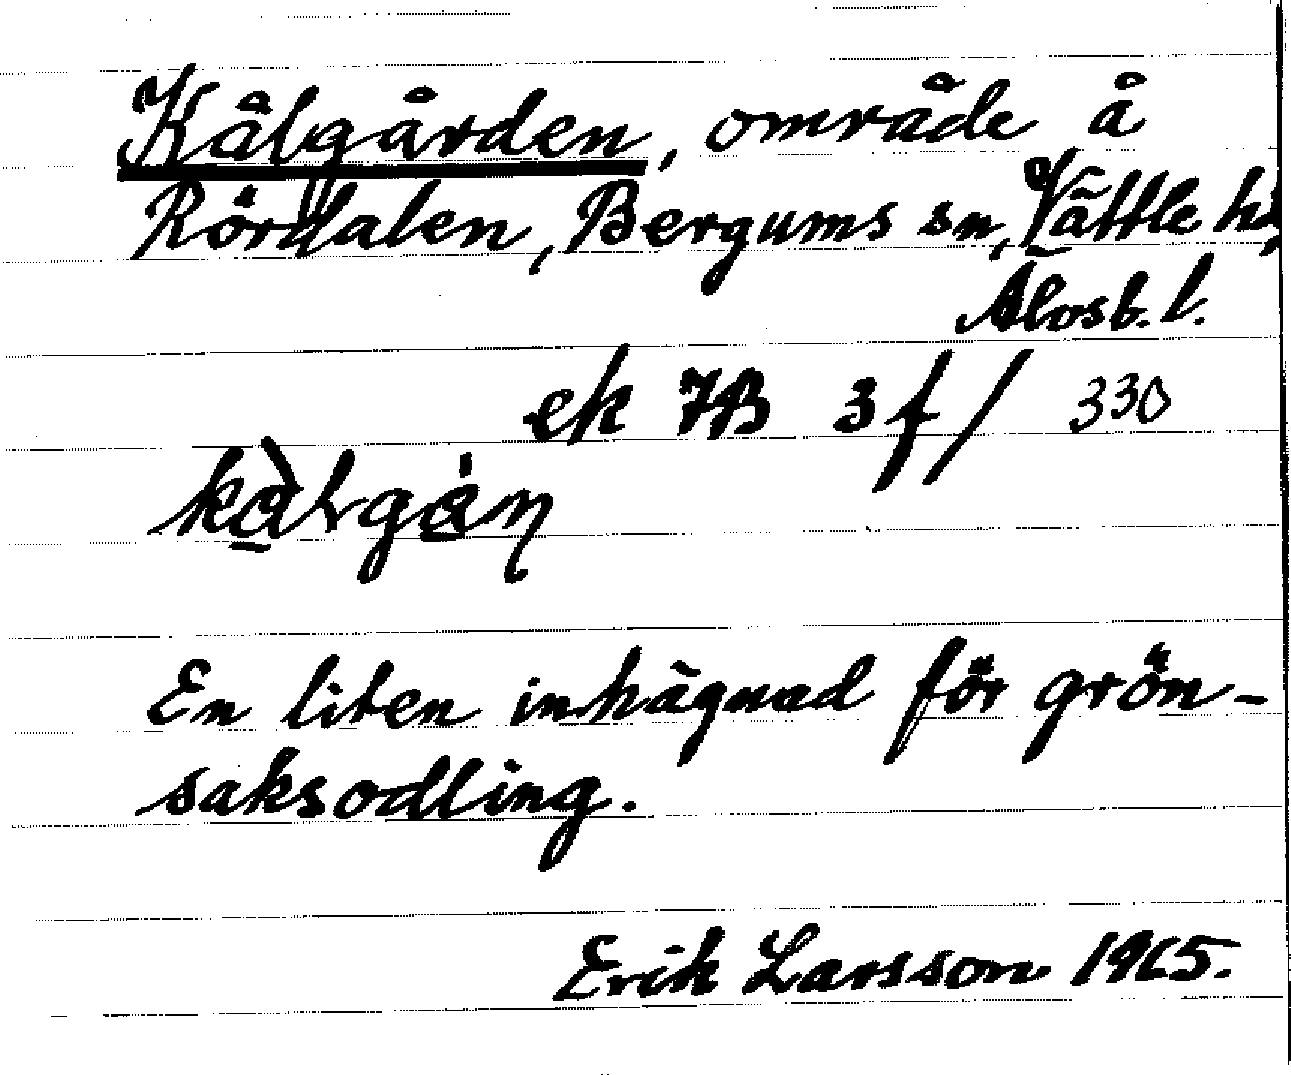 Kålgården, område å
Rördalen, Bergums sn, Vättle hd,
Älvsb. l.
ek 7B 3f/ 330
En liten inhägnad för grön-
saksodling.
Erik Larsson 1965.